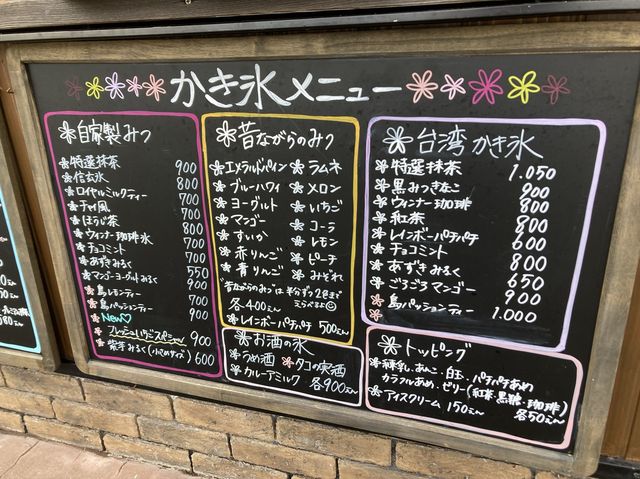 かき氷メニュー
自家製みつ
特選抹茶 900
信玄氷 800
ロイヤルミルクティー 700
チャイ風 700
ほうじ茶 700
ウィンナー珈琲氷 800
チョコミント 700
あずきみるく 700
マンゴーヨーグルトみるく 550
島レモンティー 900
島パッションティー 700
New♡ 900
フレッシュいちごスペシャル 900
紫芋みるく(小さめサイズ) 600
昔ながらのみつ
エメラルドパイン
ブルーハワイ
ヨーグルト
マンゴー
すいか
赤りんご
青りんご
ラムネ
メロン
いちご
コーラ
レモン
ピーチ
みぞれ
"昔ながらのみつ"は半分ずつ2色まで
えらべるよ♡
各400えん
レインボーパチパチ 500えん
お酒の氷
うめ酒
タコの実酒
カルーアミルク 各900えん
台湾かき氷
特選抹茶 1.050
黒みつきなこ 900
ウィンナー珈琲 800
紅茶 800
レインボーパチパチ 600
チョコミント 800
あずきみるく 650
ごろごろマンゴー 900
島パッションティー 1.000
トッピング
練乳・あんこ・白玉・パチパチあめ
カラフルあめ・ゼリー(紅茶・黒糖・珈琲)
各50えん
アイスクリーム 150えん